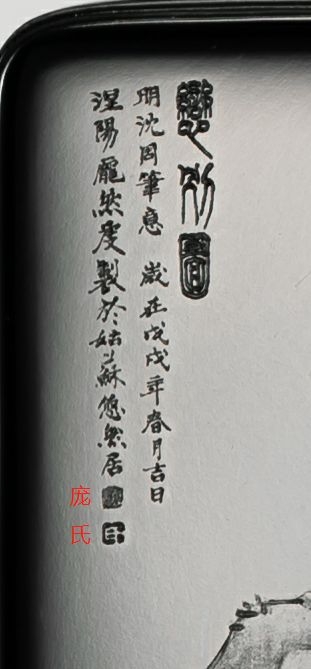 戀別圖
明沈周筆意 歲在戊戌年春月吉日
涅陽龐然度製於姑蘇悠然居
庞氏